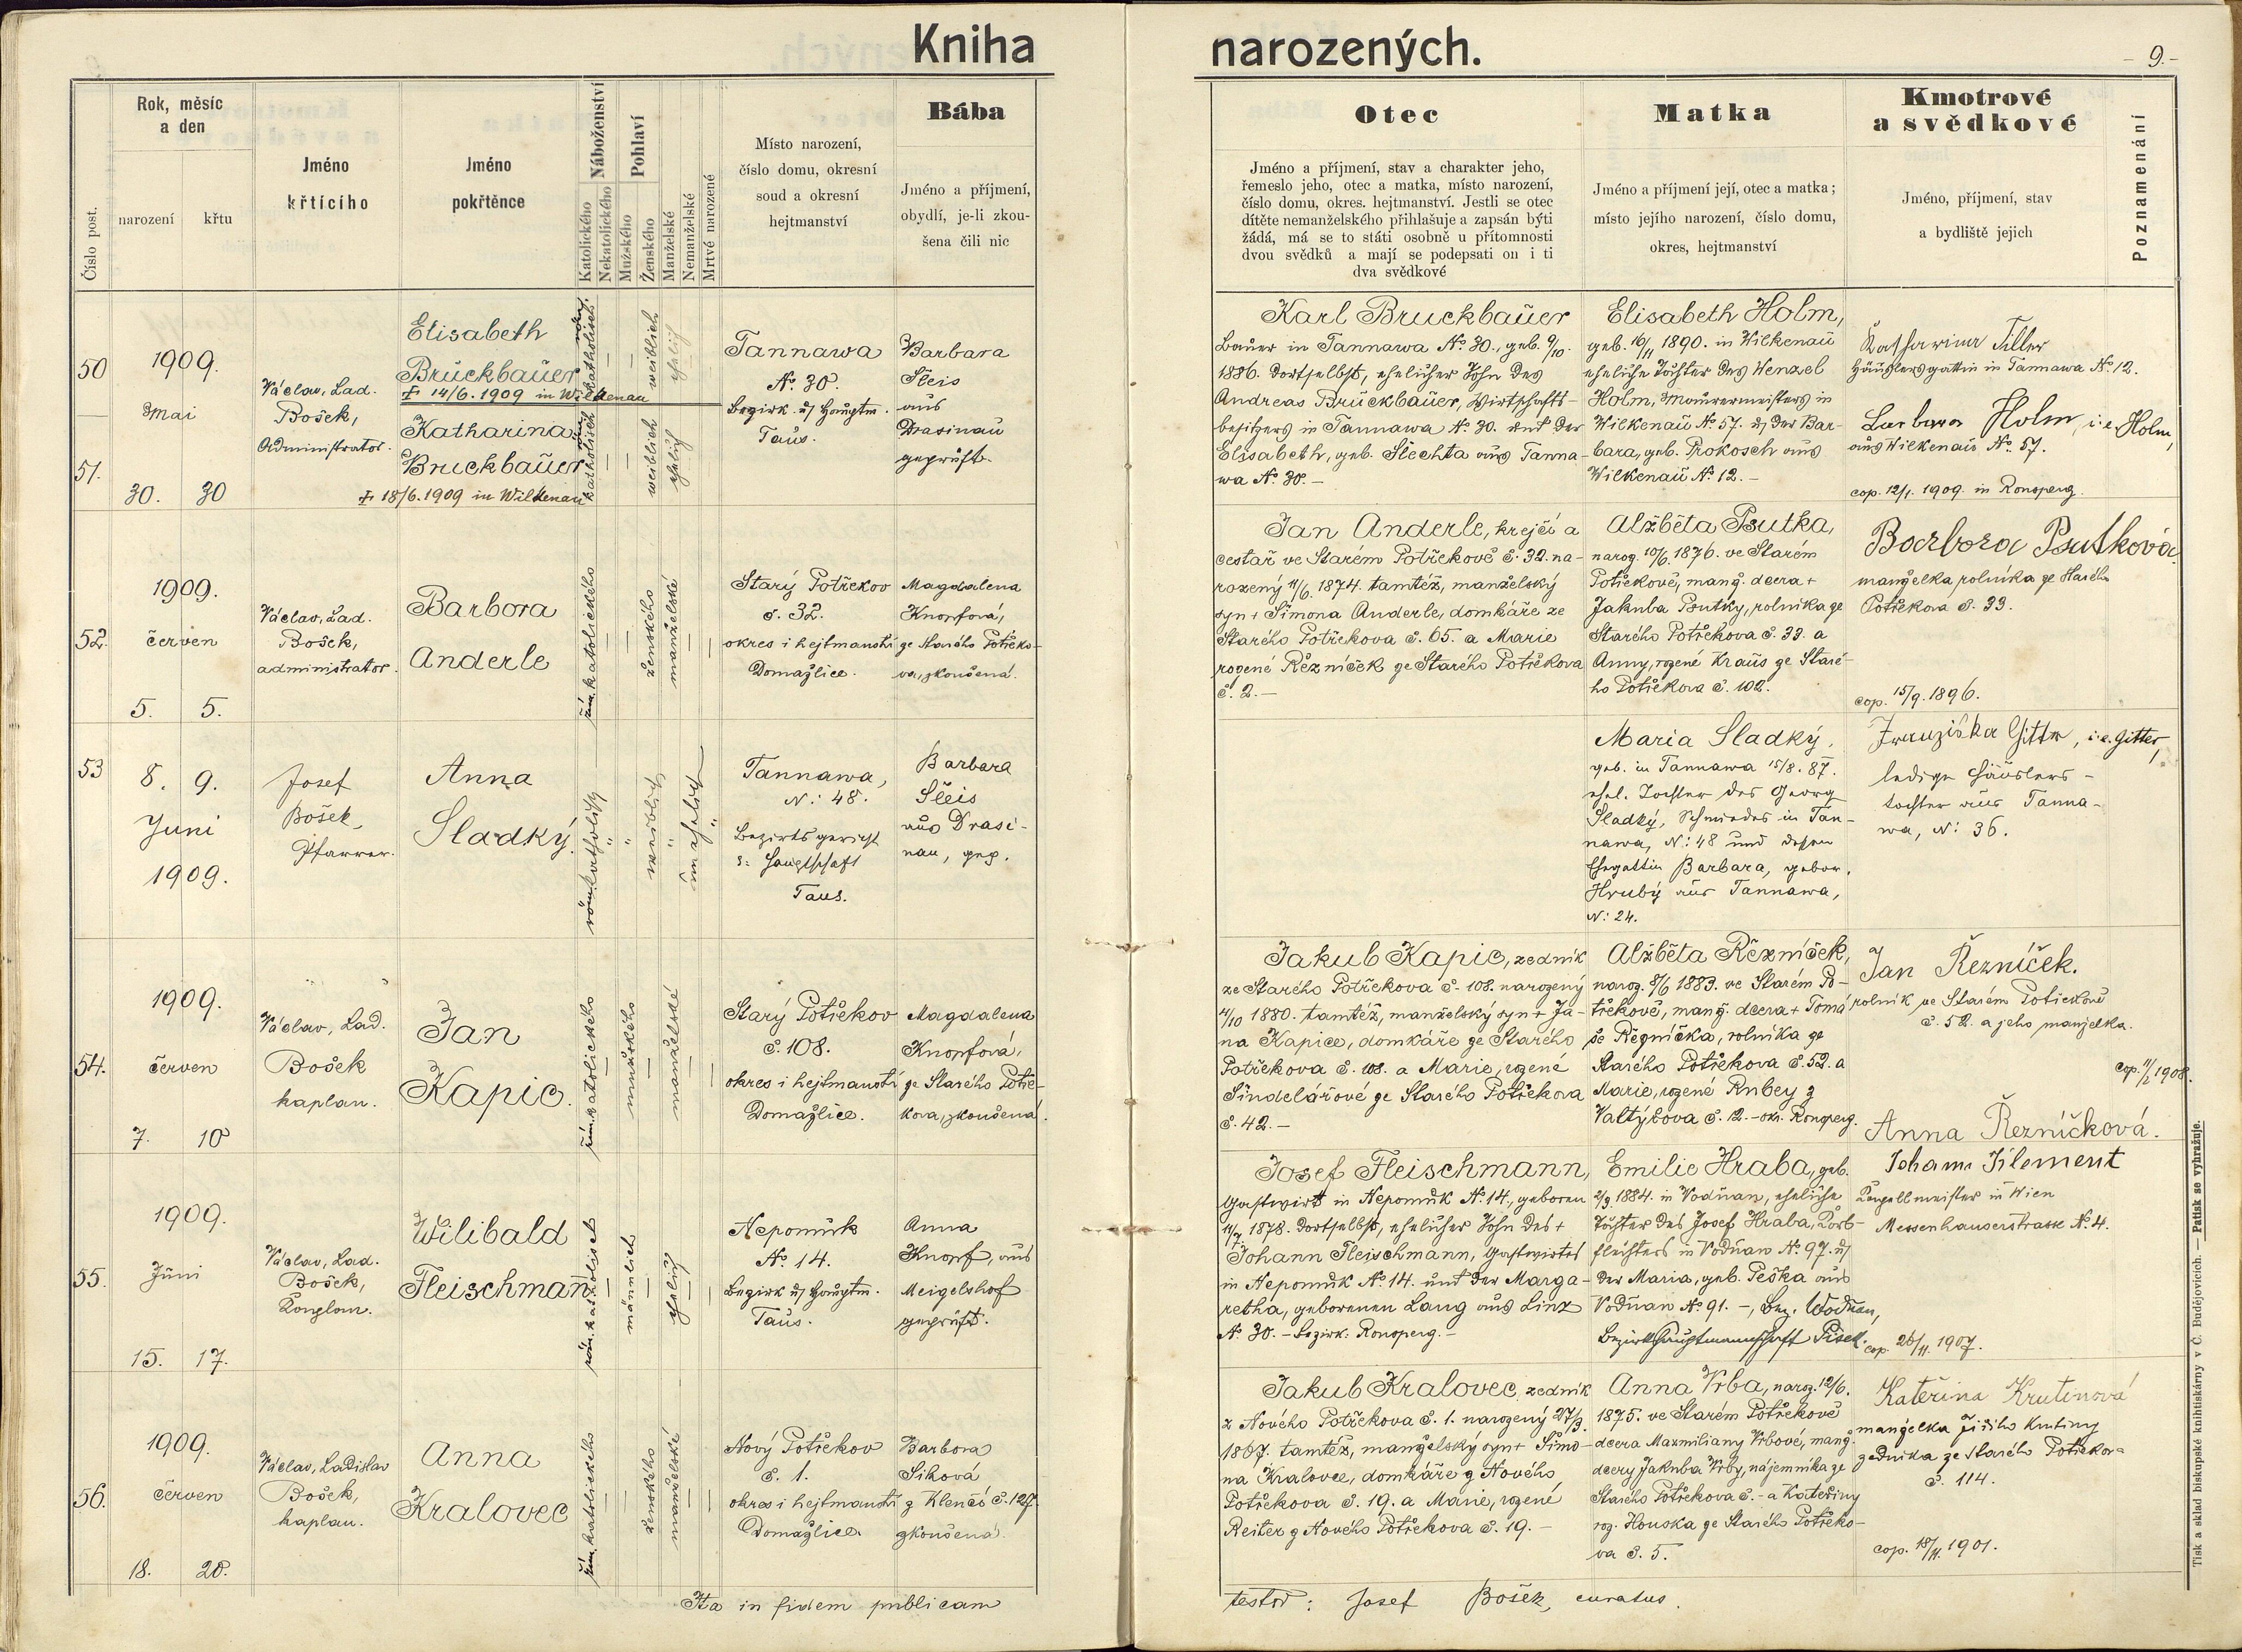 Kniha
narozených.
- 9. -
Číslo post.
Rok, měsíc
a den
narození
křtu
Jméno
křtícího
Jméno
pokřtěnce
Náboženství
Katolického
Nekatolického
Pohlaví
Mužského
Ženského
Manželské
Nemanželské
Mrtvé narozené
Místo narození,
číslo domu, okresní
soud a okresní
hejtmanství
Bába
Jméno a příjmení,
obydlí, je-li zkou-
šena čili nic
Otec
Jméno a příjmení, stav a charakter jeho,
řemeslo jeho, otec a matka, místo narození,
číslo domu, okres. hejtmanství. Jestli se otec
dítěte nemanželského přihlašuje a zapsán býti
žádá, má se to státi osobně u přítomnosti
dvou svědků a mají se podepsati on i ti
dva svědkové
Matka
Jméno a příjmení její, otec a matka;
místo jejího narození, číslo domu,
okres, hejtmanství
Kmotrové
a svědkové
Jméno, příjmení, stav
a bydliště jejich
Poznamenání
50
51.
1909.
Mai
30. 30
Václav, Lad.
Bošek,
Administrator.
Elisabeth
Bruckbauer
† 14/6. 1909 in Wilkenau
Katharina
Bruckbauer
† 18/6. 1909 in Wilkenau
röm. katholisch.
weiblich
ehelich
röm. katholisch
weiblich
ehelich
Tannawa
No. 30.
Bezirk u. Hauptm.
Taus.
Barbara
Sleis
aus
Drasinau
geprüft.
Karl Bruckbauer
Bauer in Tannawa No. 30., geb. 9/10.
1886. dortselbst, ehelicher Sohn des
Andreas Bruckbauer, Wirtschafts-
besitzers in Tannawa No. 30. und der
Elisabeth, geb. Šlechta aus Tanna-
wa No. 30. -
Elisabeth Holm,
geb. 16/11 1890. in Wilkenau
eheliche Tochter des Wenzel
Holm, Maurermeisters in
Wilkenau No. 57. u. der Bar-
bara, geb. Prokosch aus
Wilkenau No. 12. -
Katharina Tiller
Häuslersgattin in Tannawa No. 12.
Barbara Holm, i.e. Holm,
aus Wilkenau No. 57.
cop. 12/1. 1909. in Ronsperg.
52.
1909.
červen
5. 5.
Václav, Lad.
Bošek,
administrator.
Barbora
Anderle
řím. katolického
ženského
manželské
Starý Potřekov
č. 32.
okres i hejtmanství
Domažlice.
Magdalena
Knopfová,
ze Starého Potřeko-
va, zkoušená.
Jan Anderle, krejčí a
cestař ve Starém Potřekově č. 32. na-
rozený 11/6. 1874. tamtéž, manželský
syn † Šimona Anderle, domkáře ze
Starého Potřekova č. 65. a Marie
rozené Řezníček ze Starého Potřekova
č. 2. -
Alžběta Psutka,
naroz. 10/6 1876. ve Starém
Potřekově, manž. dcera †
Jakuba Psutky, rolníka ze
Starého Potřekova č. 33. a
Anny, rozené Kraus ze Staré-
ho Potřekova č. 102.
Barbora Psutková
manželka rolníka ze Starého
Potřekova č. 33.
cop. 15/9. 1896.
53
8. 9.
Juni
1909.
Josef
Bošek,
Pfarrer.
Anna
Sladký.
röm. katholisch
"
weiblich
"
unehelich
"
Tannawa,
N: 48.
Bezirksgericht
u: Hauptschaft
Taus.
Barbara
Sleis
aus Drasi-
nau, gep.
Maria Sladký,
geb. in Tannawa 15/8. 87.
ehel. Tochter des Georg
Sladký, Schmiedes in Tan-
nawa, N: 48 und dessen
Ehegattin Barbara, gebor.
Hrubý aus Tannawa,
N: 24.
Franziska Gitter, i.e. Gitter,
ledige Häuslers-
tochter aus Tanna-
wa, N: 36.
54.
1909.
červen
7. 10
Václav, Lad.
Bošek
kaplan.
Jan
Kapic.
řím. katolického
mužského
manželské
Starý Potřekov
č. 108.
okres i hejtmanství
Domažlice.
Magdalena
Knopfová,
ze Starého Potře-
kova, zkoušená.
Jakub Kapic, zedník
ze Starého Potřekova č. 108. narozený
4/10 1880. tamtéž, manželský syn † Ja-
na Kapice, domkáře ze Starého
Potřekova č. 108. a Marie, rozené
Šindelářové ze Starého Potřekova
č. 42. -
Alžběta Řezníček,
naroz. 8/6 1883. ve Starém Po-
třekově, manž. dcera † Tomá
še Řezníčka, rolníka ze
Starého Potřekova č. 52. a
Marie, rozené Rubey z
Valtýřova č. 12. - okr. Ronsperg.
Jan Řezníček.
rolník ve Starém Potřekově
č. 52. a jeho manželka.
cop. 11/2 1908.
Anna Řezníčková.
55.
1909.
Juni
15. 17.
Václav, Lad.
Bošek,
Kaplan.
Wilibald
Fleischmann
röm. katholisch
männlich
ehelich
Nepomuk
No. 14.
Bezirk u. Hauptm.
Taus.
Anna
Knopf, aus
Meigelshof
geprüft.
Josef Fleischmann,
Gastwirt in Nepomuk No. 14., geboren
11/7. 1878. dortselbst, ehelicher Sohn des †
Johann Fleischmann, Gastwirtes
in Nepomuk No. 14. und der Marga-
retha, geborenen Lang aus Linz
No. 30. - Bezirk: Ronsperg. -
Emilie Hraba, geb.
2/9 1884. in Vodňan, eheliche
Tochter des Josef Hraba, Korb-
flechters in Vodňan No. 97. u.
der Maria, geb. Peška aus
Vodňan No. 91. -, Bez. Wodňan,
Bezirkshauptmannschaft Pisek.
Johann Klement
Kapellmeister in Wien
Messenhauserstrasse No. 4.
cop. 26/11. 1907.
56.
1909.
červen
18. 20.
Václav, Ladislav
Bošek,
kaplan.
Anna
Kralovec
řím. katolického
ženského
manželské
Nový Potřekov
č. 1.
okres i hejtmanství
Domažlice.
Barbora
Sihová
z Klenčí č. 127.
zkoušená.
Jakub Kralovec, zedník
z Nového Potřekova č. 1. narozený 27/3.
1867. tamtéž, manželský syn † Šimo-
na Kralovce, domkáře z Nového
Potřekova č. 19. a Marie, rozené
Reiter z Nového Potřekova č. 19. -
Anna Vrba, naroz. 12/6.
1875. ve Starém Potřekově
dcera Maxmiliany Vrbové, manž.
dcery Jakuba Vrby, nájemníka ze
Starého Potřekova č. - a Kateřiny
roz. Houska ze Starého Potřeko-
va č. 5.
Kateřina Krutinová
manželka Jiřího Krutiny
zedníka ze Starého Potřekova
č. 114.
cop. 18/11. 1901.
Ita in fidem publicam
testor: Josef Bošek, curatus.
Tisk a sklad biskupské knihtiskárny v Č. Budějovicích. — Patisk se vyhražuje.